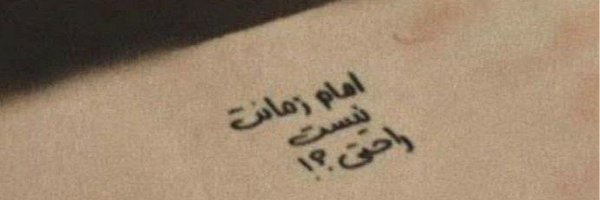 امام زمانت
نیست
راحتی؟!